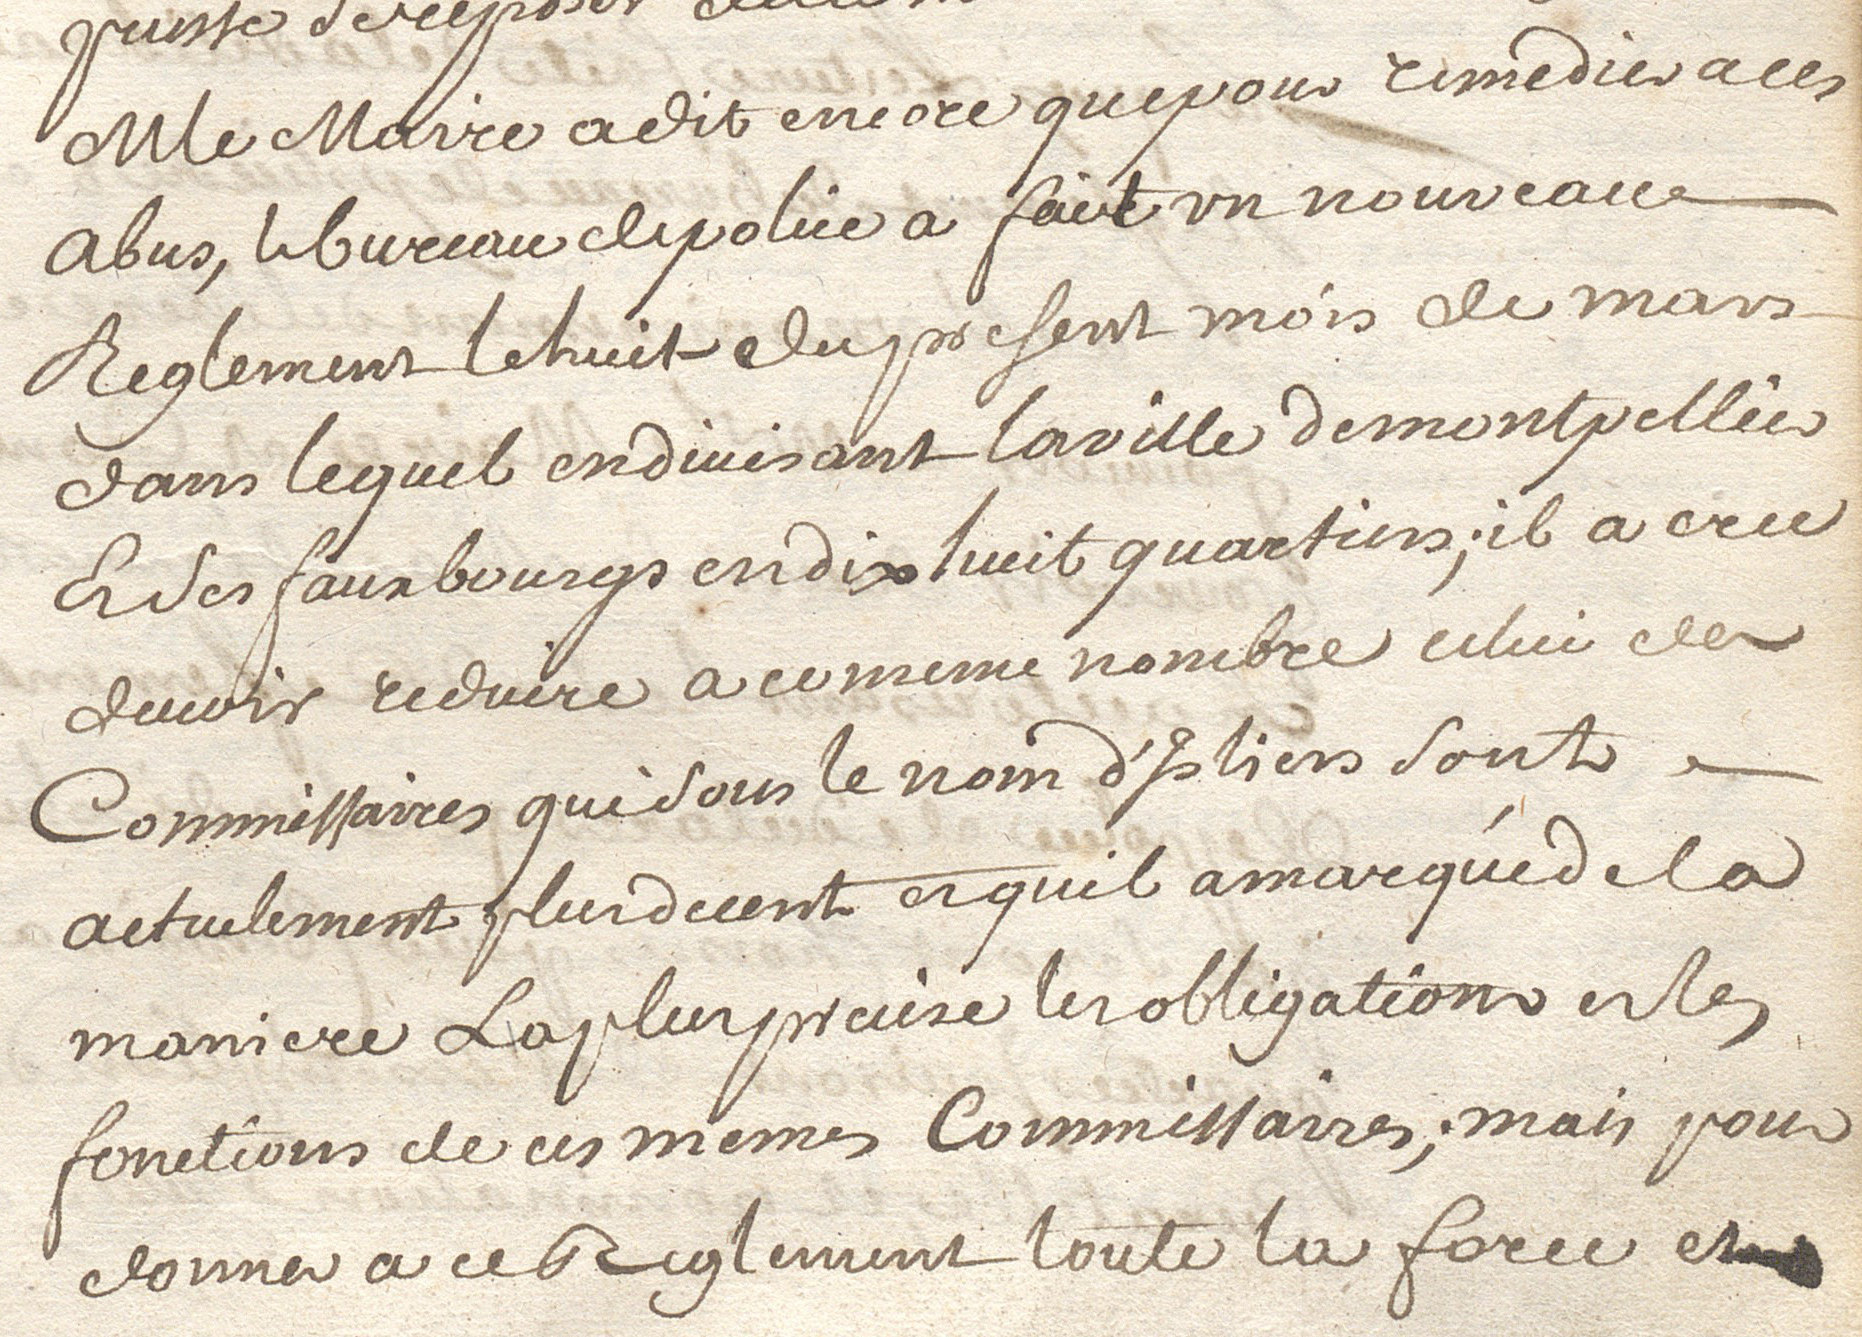 puisse se reposer
M le Maire a dit encore que pour remedier a ces
abus, le bureau de police a fait un nouveau
Reglement le huit du present mois de mars
dans lequel en divisant la ville de montpellier
Et ses fauxbourgs en dix huit quartiers; il a cru
devoir reduire a ce meme nombre celui des
Commissaires qui sous le nom d'Isliers sont
actuelement plus de cent et quil a marqué de la
maniere La plus precise les obligations et les
fonctions de ces memes Commissaires; mais pour
donner a ce Reglement toute la force et